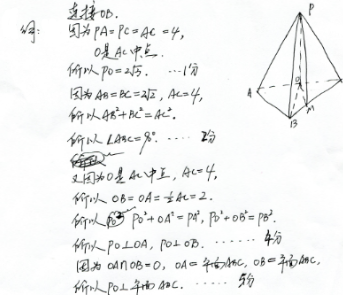 解: 连接OB.
因为PA=PC=AC=4,
O是AC中点.
所以PO=2√3. …1分
因为AB=BC=2√2, AC=4,
所以AB²+BC²=AC².
所以∠ABC=90°. …… 2分
又因为O是AC中点, AC=4,
所以OB=OA=½AC=2.
所以 PO²+OA²=PA², PO²+OB²=PB².
所以PO⊥OA, PO⊥OB. …… 4分
因为OA∩OB=O, OA⊂平面ABC, OB⊂平面ABC,
所以PO⊥平面ABC. …… 5分
P
A
O
B
M